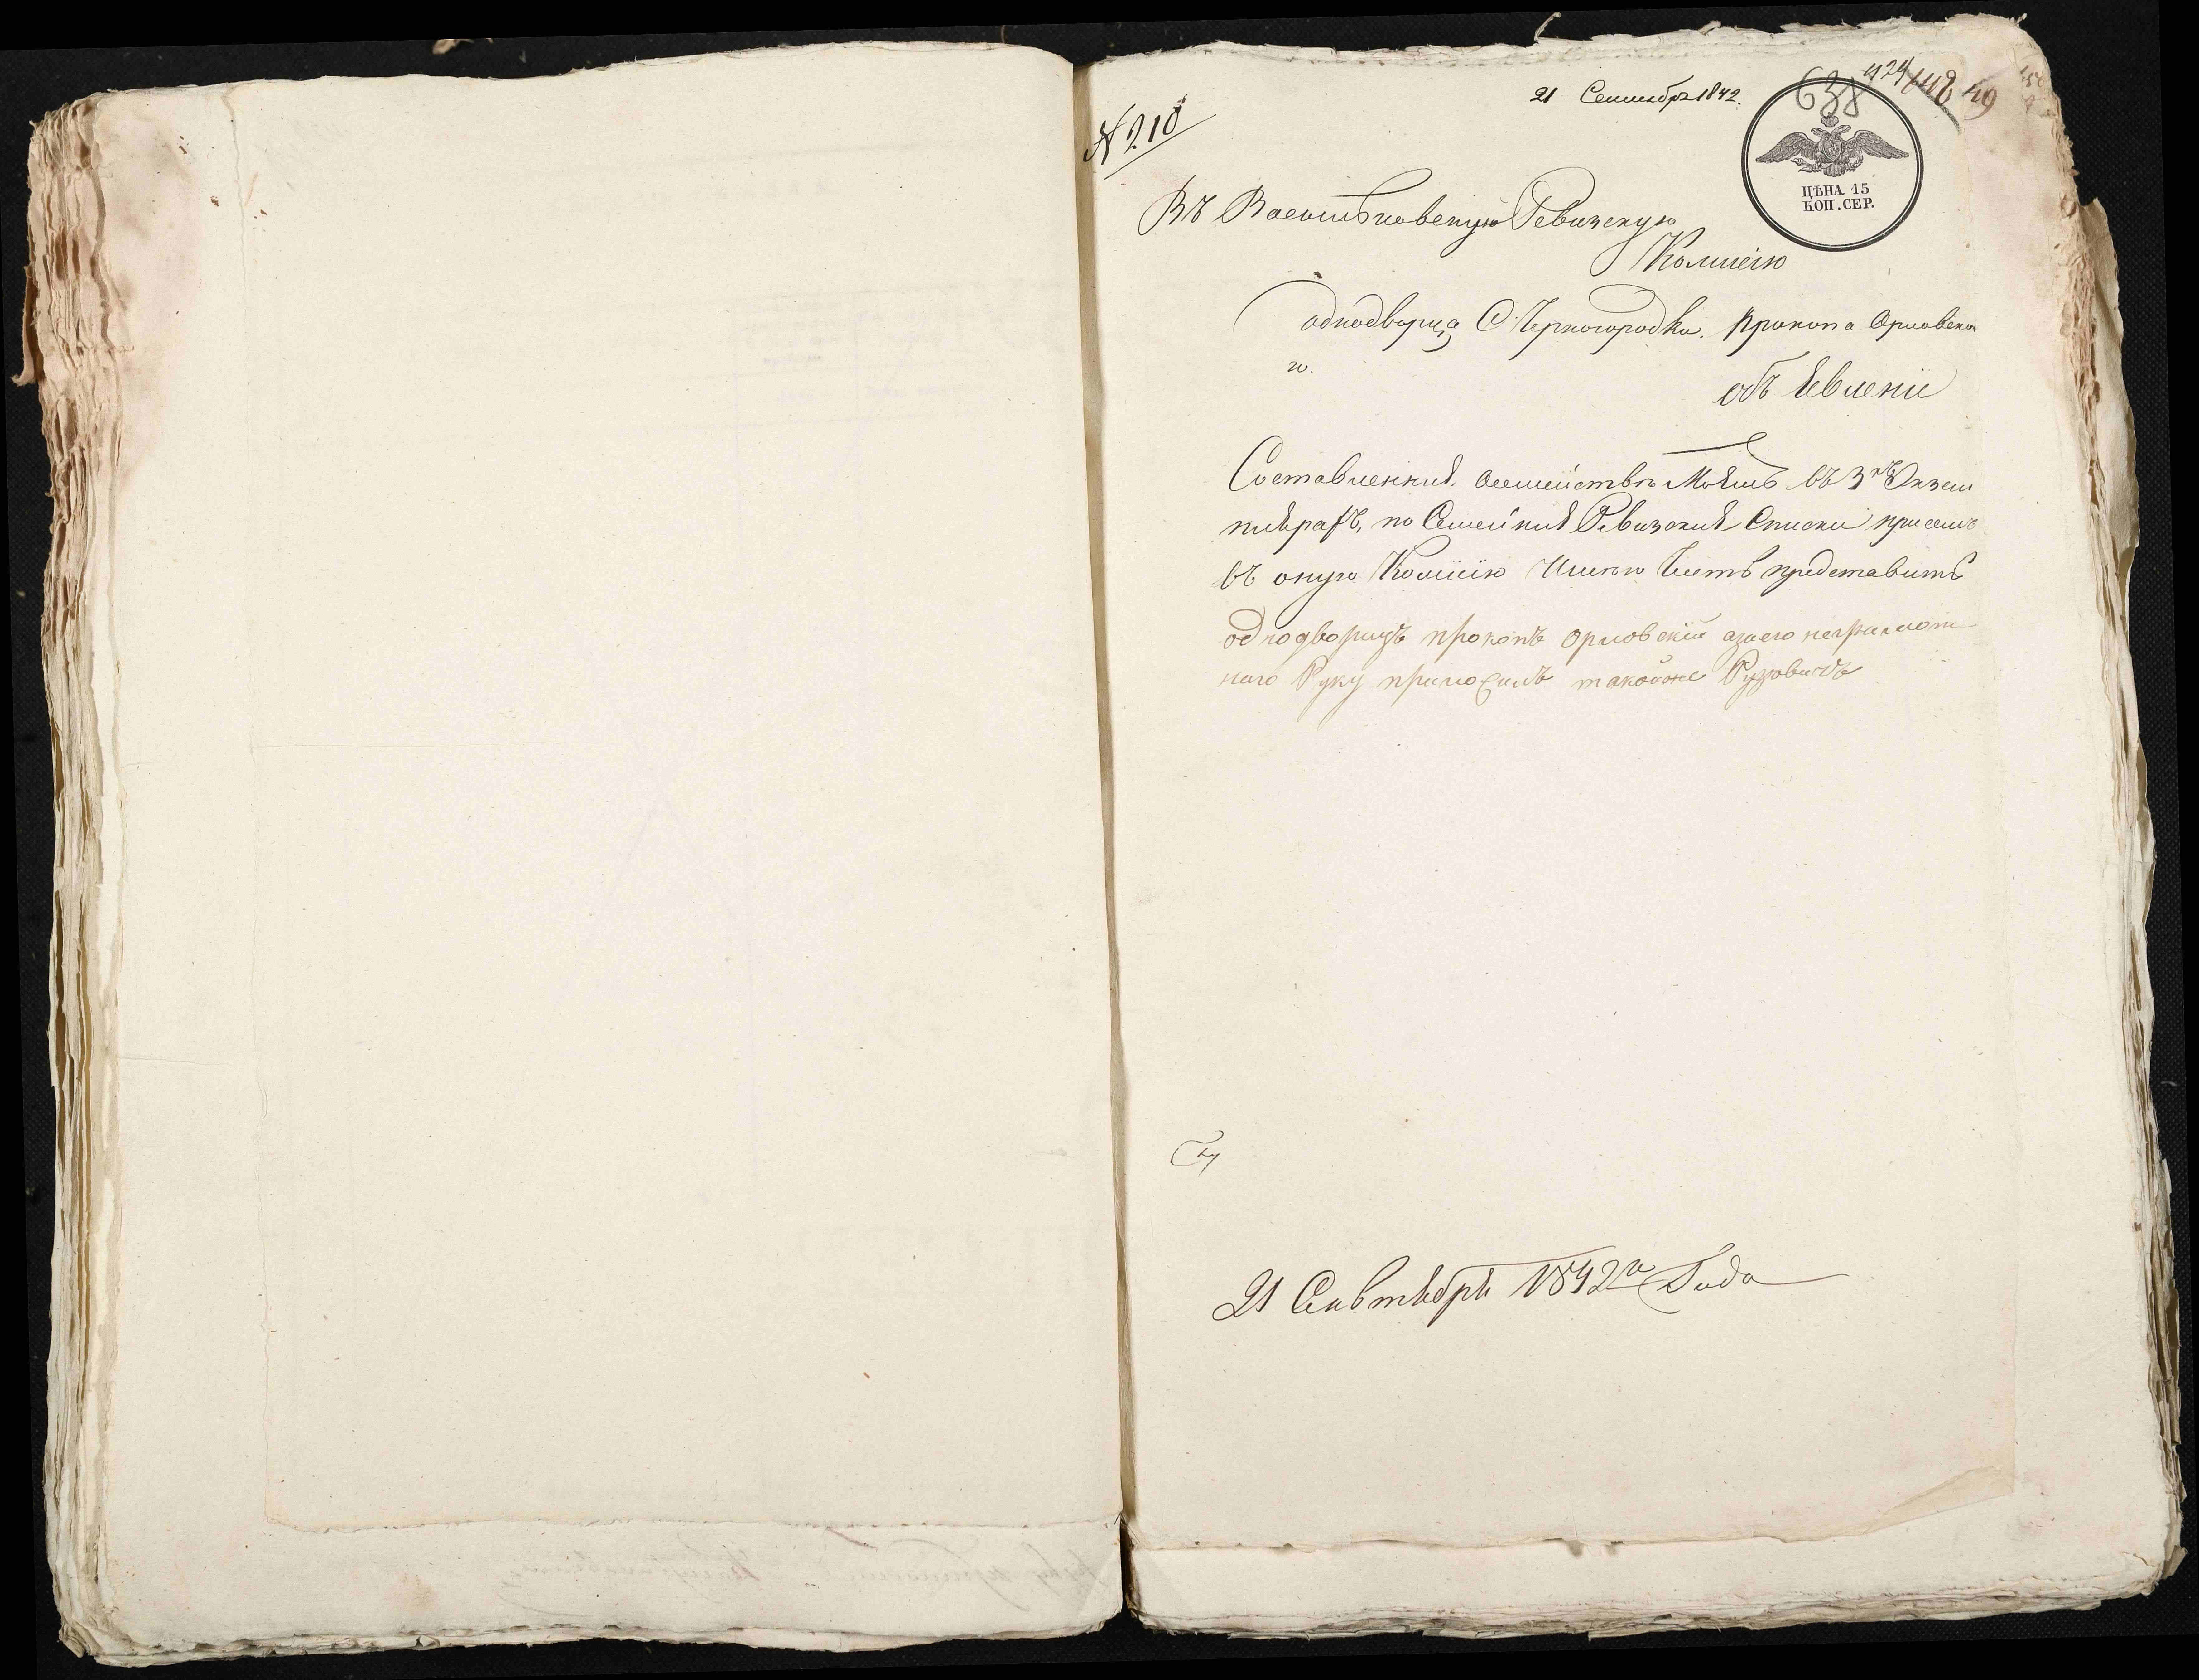 21 Сентября 1842.
638
424
49
№ 210
ЦѢНА 15
КОП. СЕР.
Въ Васильковскую Ревизскую
Комисію
однодворца С Черногородки. Прокопа Орловска
го.
объ Явленіе
Составленніѣ Семействѣ Моѣмъ въ 3хъ Экзем
плѣрахъ, по Семейніѣ Ревизскиѣ Списки при семъ
въ оную Комисію Имѣю Честь представить
однодворцъ прокопъ орловскій азаего неграмот
наго Руку приложилъ такойже
21 Сенвтѣбрѣ 1842го Года